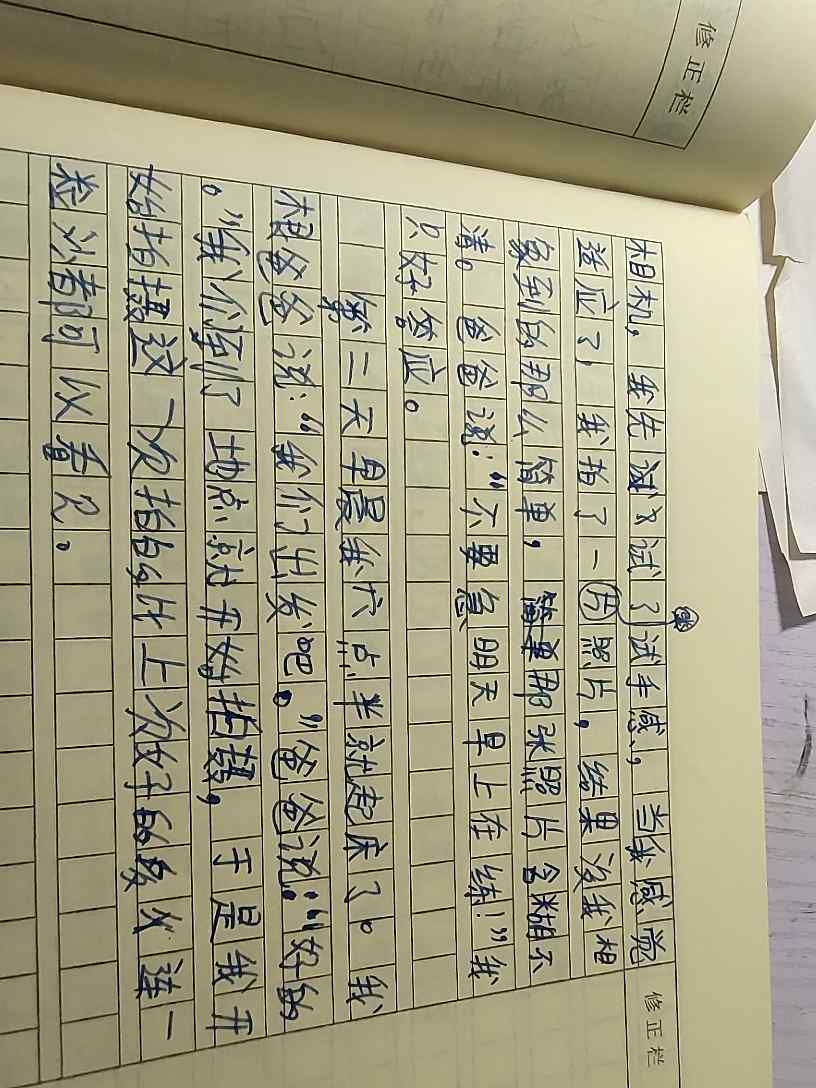 修正栏
相机，我先试了试了试手感，当我感觉
适应了，我拍了一片照片，结果没我相
象到的那么简单，简单那张照片含糊不
清。爸爸说：“不要急明天早上在练！”我
只好答应。
第二天早晨我六点半就起床了。我
根爸爸说：“我们出发吧。”爸爸说：“好的
。”我们到了地点就开始拍摄，于是我开
始拍摄这一次拍的比上次好的多火连一
粒沙都可以看见。
修正栏